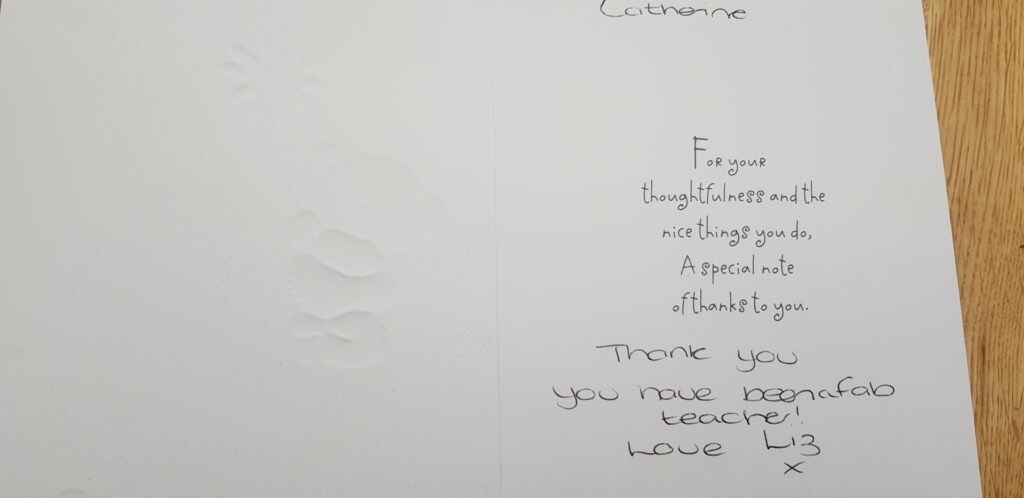 Catherine
For your
thoughtfulness and the
nice things you do,
A special note
of thanks to you.
Thank you
you have been a fab
teacher!
Love Liz
x